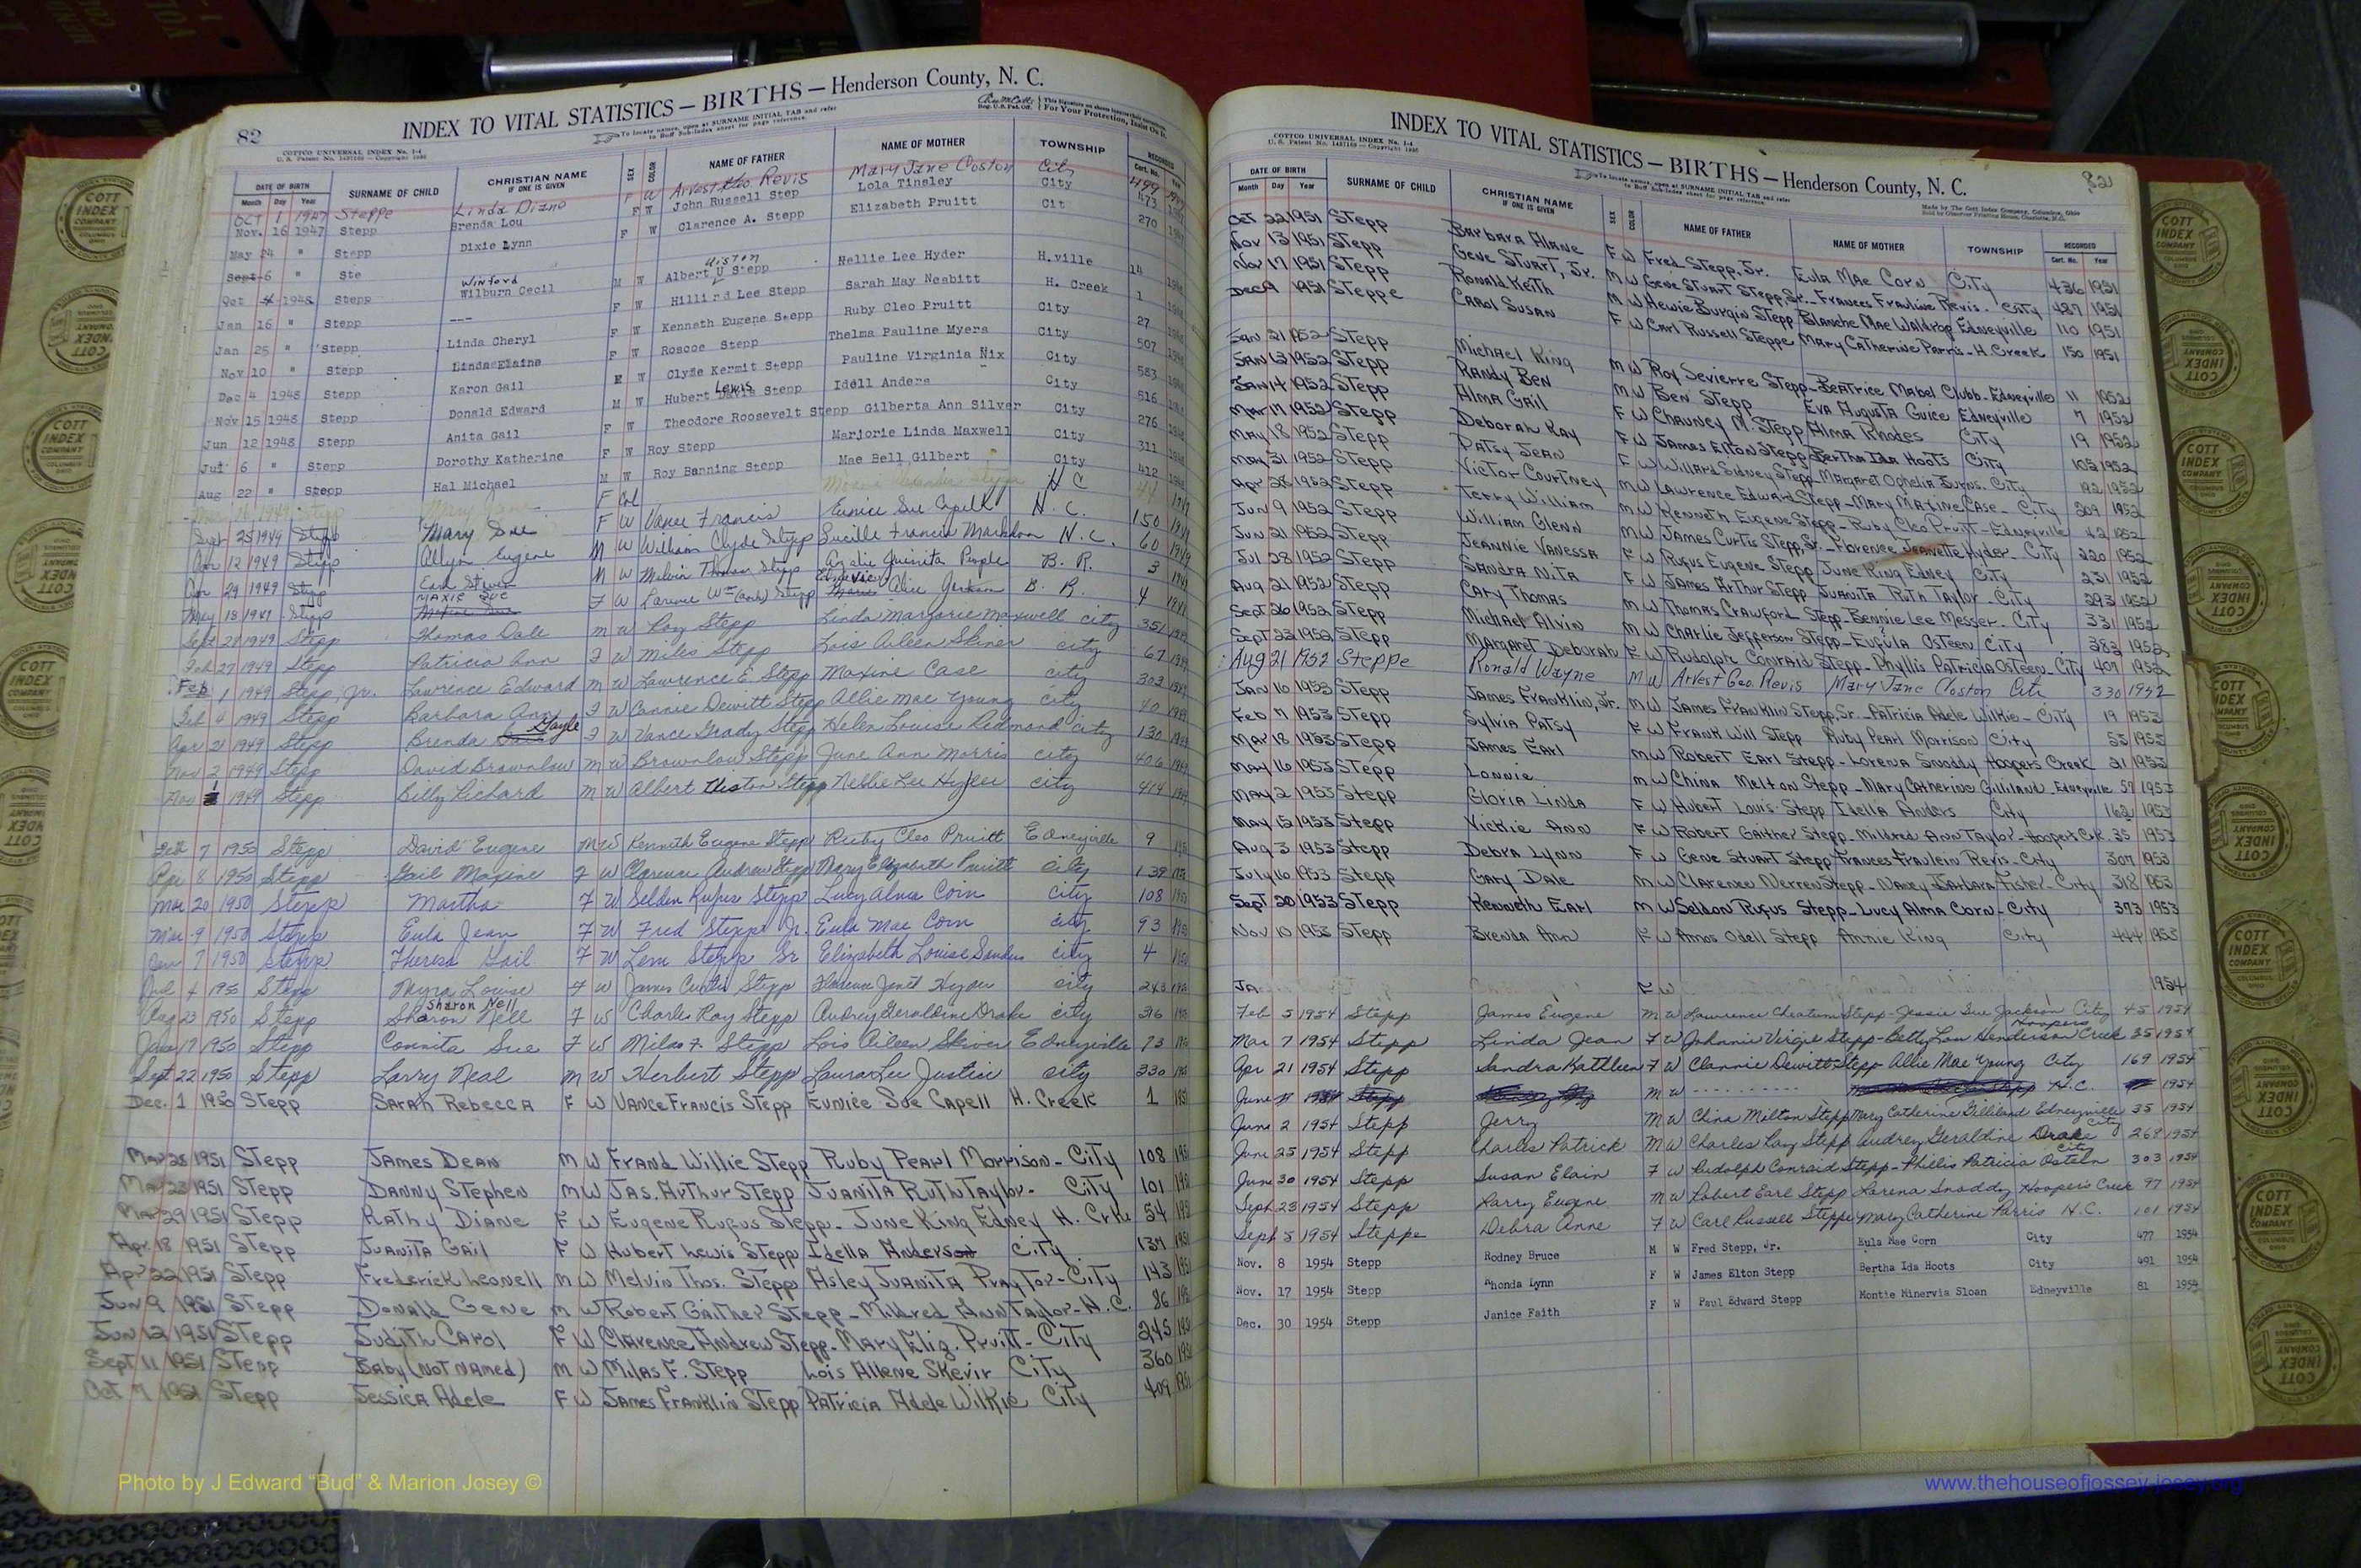 82
INDEX TO VITAL STATISTICS — BIRTHS — Henderson County, N. C.
COTTCO UNIVERSAL INDEX No. 1-4
To locate names, open at SURNAME INITIAL TAB and refer
to Buff Sub-Index sheet for page reference.
DATE OF BIRTH SURNAME OF CHILD CHRISTIAN NAME IF ONE IS GIVEN SEX COLOR NAME OF FATHER NAME OF MOTHER TOWNSHIP RECORDED
Month Day Year Cert. No.
Oct 1 1947 Steppe Linda Diane F W Arvest Geo. Revis Mary Jane Coston City 499
Nov. 16 1947 Stepp Brenda Lou F W John Russell Step Lola Tinsley City 473
May 24 " Stepp Dixie Lynn F W Clarence A. Stepp Elizabeth Pruitt Cit 270
Sept 6 " Ste
Oct 4 1948 Stepp Winford Wilburn Cecil M W Albert Stepp Nellie Lee Hyder H.ville 14
Jan 16 " Stepp --- F W Lee Stepp Sarah May Nesbitt H. Creek 1
Jan 25 " Stepp Linda Cheryl F W Kenneth Eugene Stepp Ruby Cleo Pruitt City 27
Nov 10 " Stepp Linda Elaine F W Roscoe Stepp Thelma Pauline Myers City 507
Dec 4 1948 Stepp Karon Gail F W Clyde Kermit Stepp Pauline Virginia Nix City 583
Nov 15 1948 Stepp Donald Edward M W Hubert Lewis Stepp Idell Anders City 516
Jun 12 1948 Stepp Anita Gail F W Theodore Roosevelt Stepp Gilberta Ann Silver City 276
Jul 6 " Stepp Dorothy Katherine F W Roy Stepp Marjorie Linda Maxwell City 311
Aug 22 " Stepp Hal Michael M W Roy Banning Stepp Mae Bell Gilbert City 412
1949 Stepp F Col H C 44
Sept 25 1949 Stepp Mary Sue F W Vance Francis Eunice Sue Capell H. C. 150
Apr 12 1949 Stepp Eugene M W William Clyde Stepp Lucille Francis H. C. 60
Apr 29 1949 Stepp Earl M W Melvin Thomas Stepp B. R. 3
May 18 1949 Stepp Maxie Sue F W Stepp Alice B. R. 4
Sept 28 1949 Stepp Thomas Dale M W Roy Stepp Linda Marjorie Maxwell city 351
Feb 27 1949 Stepp Patricia Ann F W Miles Stepp Lois Aileen Skiver city 67
Feb 1 1949 Stepp, Jr. Lawrence Edward M W Lawrence E Stepp Maxine Case city 303
Feb 4 1949 Stepp Barbara Ann F W Connie Dewitt Stepp Allie Mae Young city 40
Apr 21 1949 Stepp Brenda Gayle F W Vance Grady Stepp Helen Louise Redmond city 130
Nov 2 1949 Stepp David Brownlow M W Brownlow Stepp June Ann Morris city 406
Nov 1949 Stepp Billy Richard M W Albert Stepp Nellie Lee Hyder city 414
Feb 7 1950 Stepp David Eugene M W Kenneth Eugene Stepp Ruby Cleo Pruitt Edneyville 9
Apr 8 1950 Stepp Gail Maxine F W Clarence Andrew Stepp Mary Elizabeth Pruitt city 139
Mar 20 1950 Stepp Martha F W Selden Rufus Stepp Lucy Alma Corn city 108
Mar 9 1950 Stepp Eula Jean F W Fred Stepp Jr. Eula Mae Corn city 93
Jan 7 1950 Stepp Theresa Gail F W Lem Stepp Sr Elizabeth Louise Sanders city 4
Jul 4 1950 Stepp Myra Louise F W James Curtis Stepp Florence Janet Hyder city 243
Aug 23 1950 Stepp Sharon Nell Sharon Nell F W Charles Roy Stepp Audrey Geraldine Drake city 316
June 17 1950 Stepp Connita Sue F W Milas F. Stepp Lois Aileen Skiver Edneyville 73
Sept 22 1950 Stepp Larry Neal M W Herbert Stepp Laura Lee Justice city 330
Dec. 1 1950 Stepp Sarah Rebecca F W Vance Francis Stepp Eunice Sue Capell H. Creek 1
Mar 25 1951 Stepp James Dean M W Frank Willie Stepp Ruby Pearl Morrison - City 108
Mar 23 1951 Stepp Danny Stephen M W Jas. Arthur Stepp Juanita Ruth Taylor - City 101
Mar 29 1951 Stepp Kathy Diane F W Eugene Rufus Stepp - June King Edney H. Crk 54
Apr 18 1951 Stepp Juanita Gail F W Hubert Lewis Stepp Idella Anderson City 137
Apr 22 1951 Stepp Frederick Leonell M W Melvin Thos. Stepp Asley Juanita Praytor - City 143
Jun 9 1951 Stepp Donald Gene M W Robert Gaither Stepp - Mildred Ann Taylor - H.C. 86
Jun 12 1951 Stepp Judith Carol F W Clarence Andrew Stepp - Mary Eliz. Pruitt - City 245
Sept 11 1951 Stepp Baby (not named) M W Milas F. Stepp Lois Allene Skevir City 360
Oct 7 1951 Stepp Jessica Adele F W James Franklin Stepp Patricia Adele Wilkie City 409
82
INDEX TO VITAL STATISTICS — BIRTHS — Henderson County, N. C.
COTTCO UNIVERSAL INDEX No. 1-4
DATE OF BIRTH SURNAME OF CHILD CHRISTIAN NAME IF ONE IS GIVEN SEX COLOR NAME OF FATHER NAME OF MOTHER TOWNSHIP RECORDED
Month Day Year Cert. No. Year
Oct 22 1951 Stepp Barbara Alane F W Fred Stepp, Jr. Eula Mae Corn City 436 1951
Nov 13 1951 Stepp Gene Stuart, Jr. M W Gene Stuart Stepp, Sr. - Frances Frauline Revis - City 487 1951
Nov 17 1951 Stepp Ronald Keith M W Hewie Burgin Stepp Blanche Mae Waldrop Edneyville 110 1951
Dec 9 1951 Steppe Carol Susan F W Carl Russell Steppe Mary Catherine Parris - H. Creek 150 1951
Jan 21 1952 Stepp Michael King M W Roy Sevierre Stepp - Beatrice Mabel Clubb - Edneyville 11 1952
Jan 13 1952 Stepp Randy Ben M W Ben Stepp Eva Augusta Guice Edneyville 7 1952
Jan 14 1952 Stepp Alma Gail F W Chauney M. Stepp Alma Rhodes City 19 1952
Mar 17 1952 Stepp Deborah Kay F W James Elton Stepp Bertha Ida Hoots City 105 1952
May 18 1952 Stepp Patsy Jean F W Willard Sidney Stepp - Margaret Ophelia Burns - City 192 1952
May 31 1952 Stepp Victor Courtney M W Lawrence Edward Stepp - Mary Maxine Case - City 209 1952
Apr 26 1952 Stepp Terry William M W Kenneth Eugene Stepp - Ruby Cleo Pruitt - Edneyville 42 1952
Jun 9 1952 Stepp William Glenn M W James Curtis Stepp, Sr. - Florence Jeanette Hyder - City 220 1952
Jun 21 1952 Stepp Jeannie Vanessa F W Rufus Eugene Stepp June King Edney City 231 1952
Jul 28 1952 Stepp Sandra Nita F W James Arthur Stepp Juanita Ruth Taylor - City 293 1952
Aug 21 1952 Stepp Cary Thomas M W Thomas Crawford Stepp - Bennie Lee Messer - City 331 1952
Sept 26 1952 Stepp Michael Alvin M W Charlie Jefferson Stepp - Eugula Osteen City 383 1952
Sept 23 1952 Stepp Margaret Deborah F W Rudolph Conraid Stepp - Phyllis Patricia Osteen - City 407 1952
Aug 21 1952 Steppe Ronald Wayne M W Arvest Geo. Revis Mary Jane Coston City 330 1952
Jan 10 1953 Stepp James Franklin, Jr. M W James Franklin Stepp, Sr. - Patricia Adele Wilkie - City 19 1953
Feb 7 1953 Stepp Sylvia Patsy F W Frank Will Stepp Ruby Pearl Morrison City 55 1953
Mar 18 1953 Stepp James Earl M W Robert Earl Stepp - Lorena Snoddy Hoopers Creek 31 1953
May 16 1953 Stepp Lonnie M W China Melton Stepp - Mary Catherine Gilliland - Edneyville 59 1953
May 2 1953 Stepp Gloria Linda F W Hubert Louis Stepp Idella Anders City 162 1953
May 15 1953 Stepp Vickie Ann F W Robert Gaither Stepp - Mildred Ann Taylor - Hoopers Crk. 35 1953
Aug 3 1953 Stepp Debra Lynn F W Gene Stuart Stepp Frances Fraulein Revis - City 307 1953
July 16 1953 Stepp Gary Dale M W Clarence Verren Stepp - Nancy Barbara Fisher - City 318 1953
Sept 20 1953 Stepp Kenneth Earl M W Seldon Rufus Stepp - Lucy Alma Corn - City 373 1953
Nov 10 1953 Stepp Brenda Ann F W Amos Odell Stepp Annie King City 444 1953
Ja F W 1954
Feb 5 1954 Stepp James Eugene M W Lawrence Cheatum Stepp - Jessie Sue Jackson City 45 1954
Mar 7 1954 Stepp Linda Jean F W Johnnie Virgil Stepp - Betty Lou Henderson Hoopers Creek 35 1954
Apr 21 1954 Stepp Sandra Kathleen F W Clannie Dewitt Stepp - Allie Mae Young City 169 1954
June 1954 Stepp M W - - - - - - - - - - H.C. 1954
June 2 1954 Stepp Jerry M W China Milton Stepp Mary Catherine Gilliland Edneyville 35 1954
June 25 1954 Stepp Charles Patrick M W Charles Roy Stepp Audrey Geraldine Drake City 269 1954
June 30 1954 Stepp Susan Elain F W Rudolph Conraid Stepp - Philis Patricia Osteen City 303 1954
Sept 23 1954 Stepp Larry Eugene M W Robert Earl Stepp Lorena Snoddy Hoopers Creek 97 1954
Sept 5 1954 Steppe Debra Anne F W Carl Russell Steppe Mary Catherine Parris H.C. 101 1954
Nov. 8 1954 Stepp Rodney Bruce M W Fred Stepp, Jr. Eula Mae Corn City 477 1954
Nov. 17 1954 Stepp Rhonda Lynn F W James Elton Stepp Bertha Ida Hoots City 491 1954
Dec. 30 1954 Stepp Janice Faith F W Paul Edward Stepp Montie Minervia Sloan Edneyville 81 1954
Photo by J Edward “Bud” & Marion Josey ©
www.thehouseofjossey-josey.org